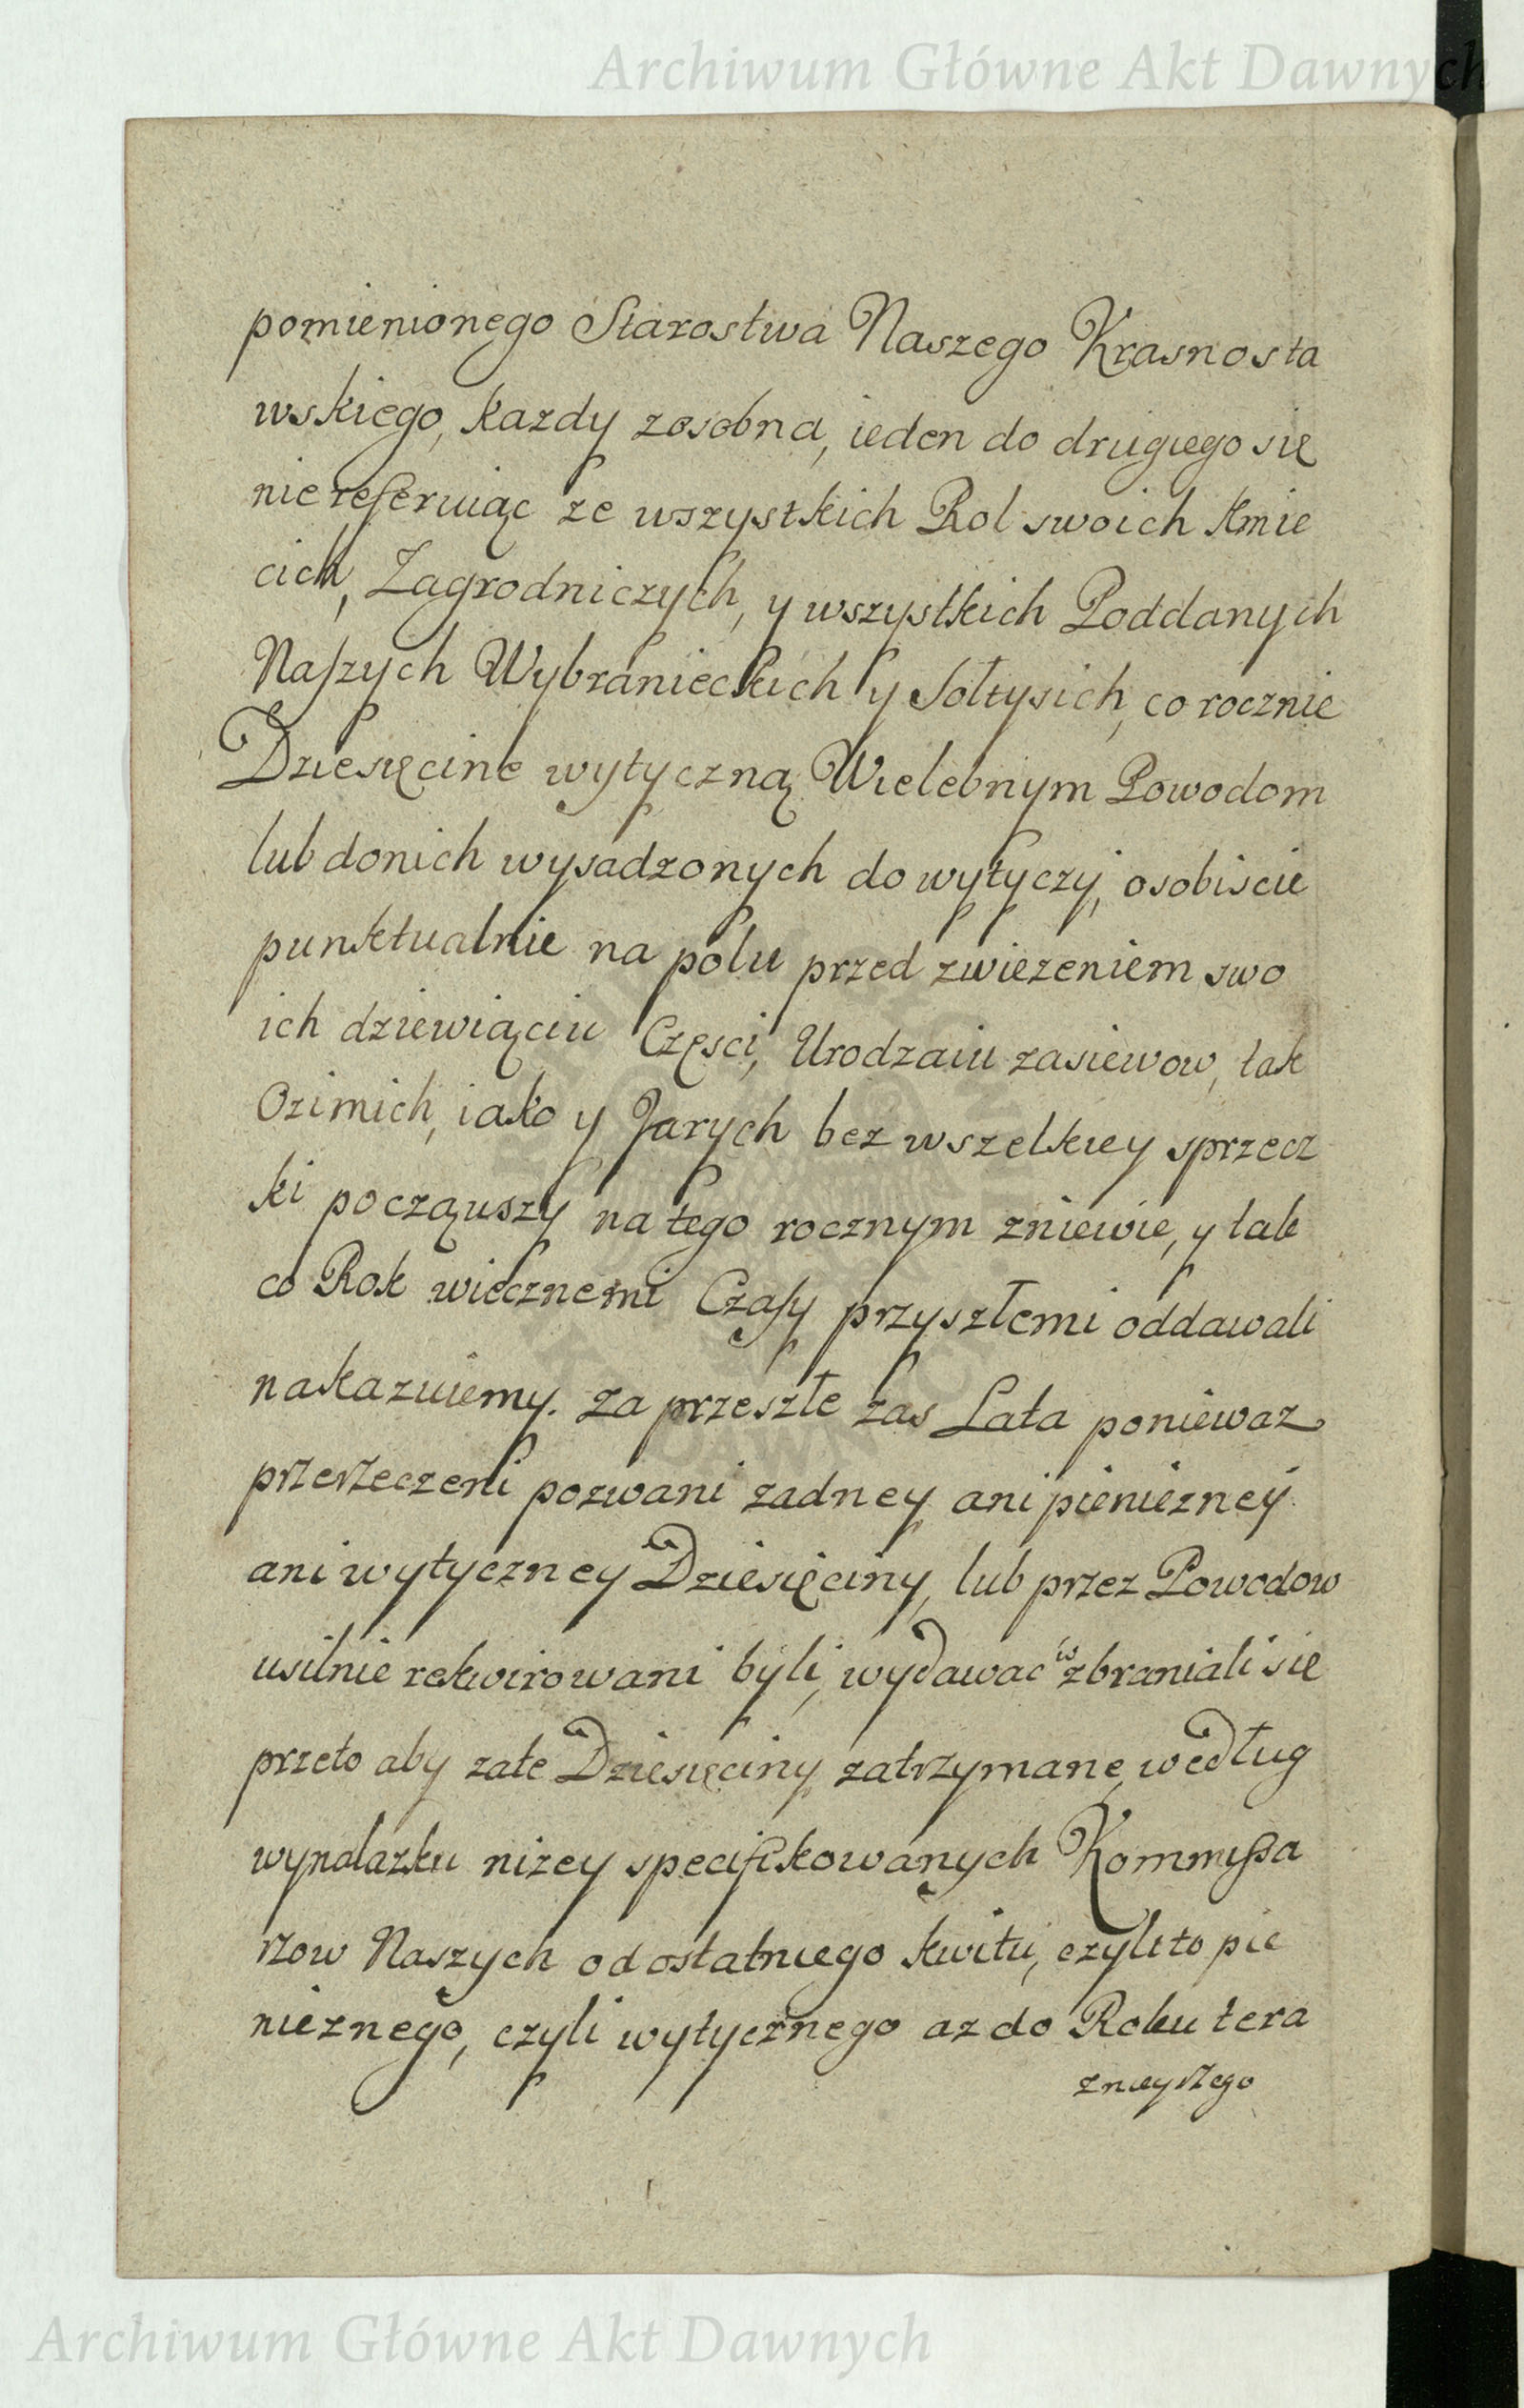 Archiwum Główne Akt Dawnych
pomienionego Starostwa Naszego Krasnosta
wskiego, kazdy zosobna, ieden do drugiego się
nie referuiąc ze wszystkich Rol swoich Kmie
cich, Zagrodniczych, y wszystkich Poddanych
Naszych Wybranieckich y Sołtysich, co rocznie
Dziesięcine wytyczną Wielebnym Powodom
lub donich wysadzonych do wytyczy, osobiscie
punktualnie na polu przed zwiezeniem swo
ich dziewiąciu Części, Urodzaiu zasiewow, tak
Ozimich, iako y Jarych bez wszelkiey sprzecz
ki począuszy na tego rocznym zniewie, y tak
co Rok wiecznemi Czasy przyszłemi oddawali
nakazuiemy. Za przeszłe zas Lata poniewaz
przerzeczeni pozwani zadney ani pieniezney
ani wytyczney Dziesięciny, lub przez Powodow
usilnie rekwirowani byli, wydawac wzbraniali się
przeto aby zate Dziesięciny zatrzymane, według
wynalazku nizey specifikowanych Kommissa
rzow Naszych od ostatniego kwitu, czyli to pie
nieznego, czyli wytycznego az do Roku tera
znieyszego
Archiwum Główne Akt Dawnych